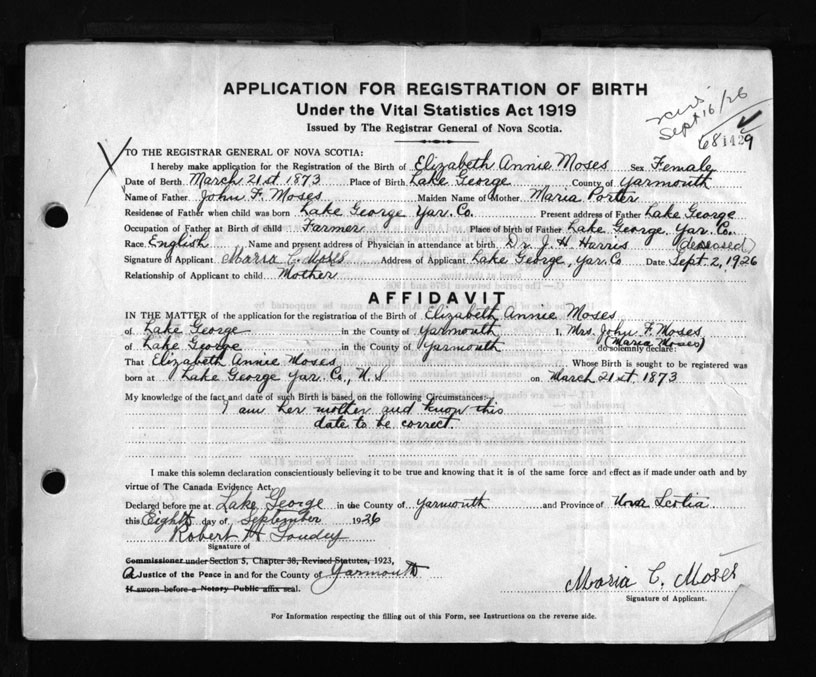 APPLICATION FOR REGISTRATION OF BIRTH
Under the Vital Statistics Act 1919
Issued by The Registrar General of Nova Scotia.
Sept 16/26
681429
TO THE REGISTRAR GENERAL OF NOVA SCOTIA:
I hereby make application for the Registration of the Birth of Elizabeth Annie Moses Sex Female
Date of Berth March 21st 1873 Place of Birth Lake George County of Yarmouth
Name of Father John F. Moses Maiden Name of Mother Maria Porter
Residense of Father when child was born Lake George Yar. Co. Present address of Father Lake George
Occupation of Father at Birth of child Farmer Place of birth of Father Lake George. Yar. Co.
Race English Name and present address of Physician in attendance at birth Dr. J. H. Harris (deceased)
Signature of Applicant Maria C. Moses Address of Applicant Lake George, Yar. Co Date Sept. 2, 1926
Relationship of Applicant to child Mother
AFFIDAVIT
IN THE MATTER of the application for the registration of the Birth of Elizabeth Annie Moses
of Lake George in the County of Yarmouth I, Mrs. John F. Moses
of Lake George in the County of Yarmouth (Maria Moses) do solemnly declare:
That Elizabeth Annie Moses Whose Birth is sought to be registered was
born at Lake George Yar. Co., N.S on March 21st 1873
My knowledge of the fact and date of such Birth is based on the following Circumstances:-
I am her mother and know this
date to be correct.
I make this solemn declaration conscientiously believing it to be true and knowing that it is of the same force and effect as if made under oath and by
virtue of The Canada Evidence Act.
Declared before me at Lake George in the County of Yarmouth and Province of Nova Scotia
this Eighth day of September 1926
Robert H Goudey
Signature of
Commissioner under Section 5, Chapter 38, Revised Statutes, 1923,
A Justice of the Peace in and for the County of Yarmouth
If sworn before a Notary Public affix seal.
Maria C. Moses
Signature of Applicant.
For Information respecting the filling out of this Form, see Instructions on the reverse side.